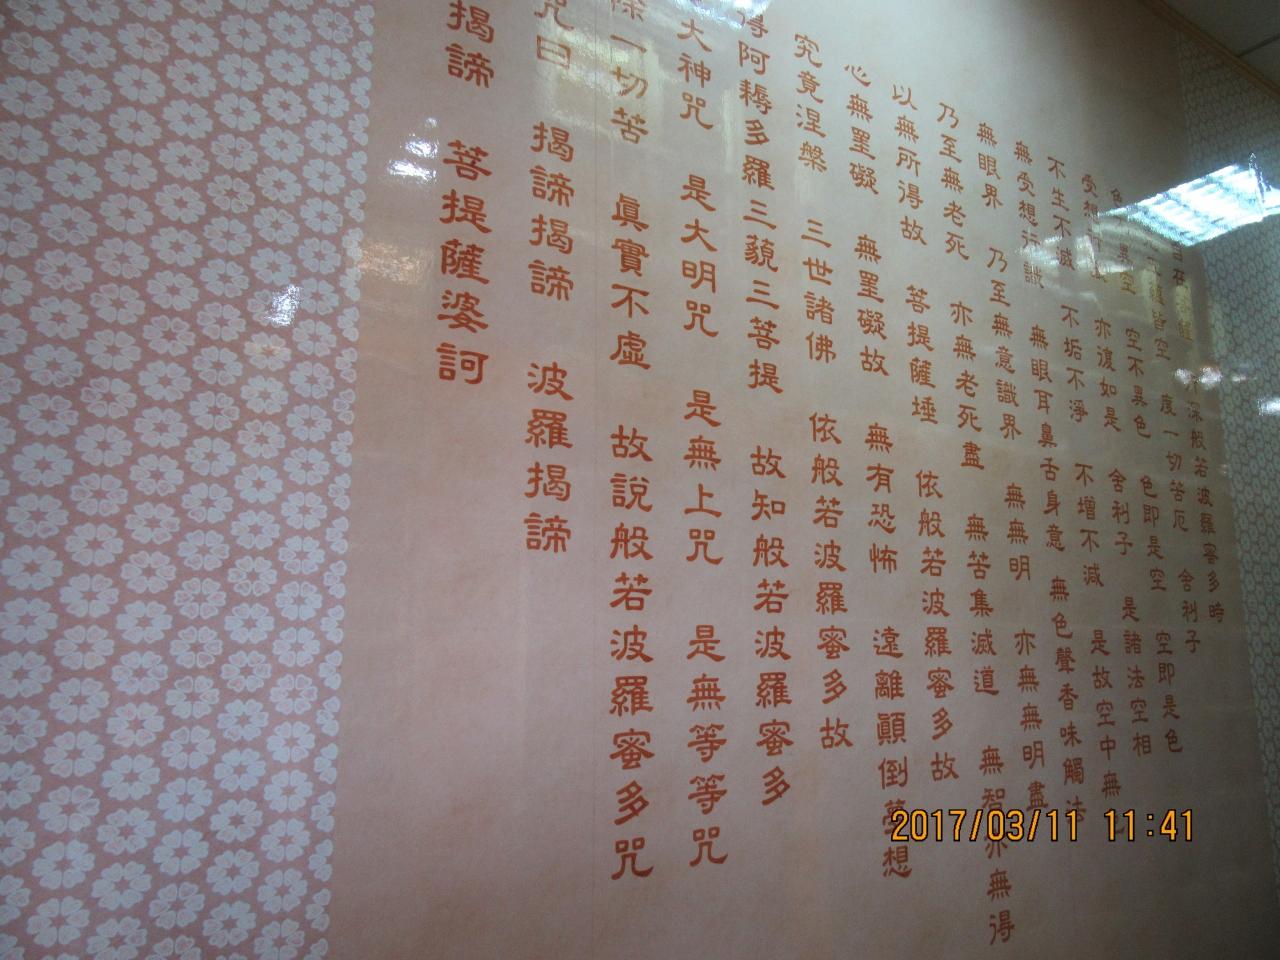 深般若波羅蜜多時
皆空 度一切苦厄 舍利子
異空 空不異色 色即是空 空即是色
受想 亦復如是 舍利子 是諸法空相
不生不滅 不垢不淨 不增不減 是故空中無
無受想行識 無眼耳鼻舌身意 無色聲香味觸法
無眼界 乃至無意識界 無無明 亦無無明盡
乃至無老死 亦無老死盡 無苦集滅道 無智亦無得
以無所得故 菩提薩埵 依般若波羅蜜多故
心無罣礙 無罣礙故 無有恐怖 遠離顛倒夢想
究竟涅槃 三世諸佛 依般若波羅蜜多故
得阿耨多羅三藐三菩提 故知般若波羅蜜多
大神咒 是大明咒 是無上咒 是無等等咒
除一切苦 眞實不虛 故說般若波羅蜜多咒
咒曰 揭諦揭諦 波羅揭諦
揭諦 菩提薩婆訶
2017/03/11 11:41